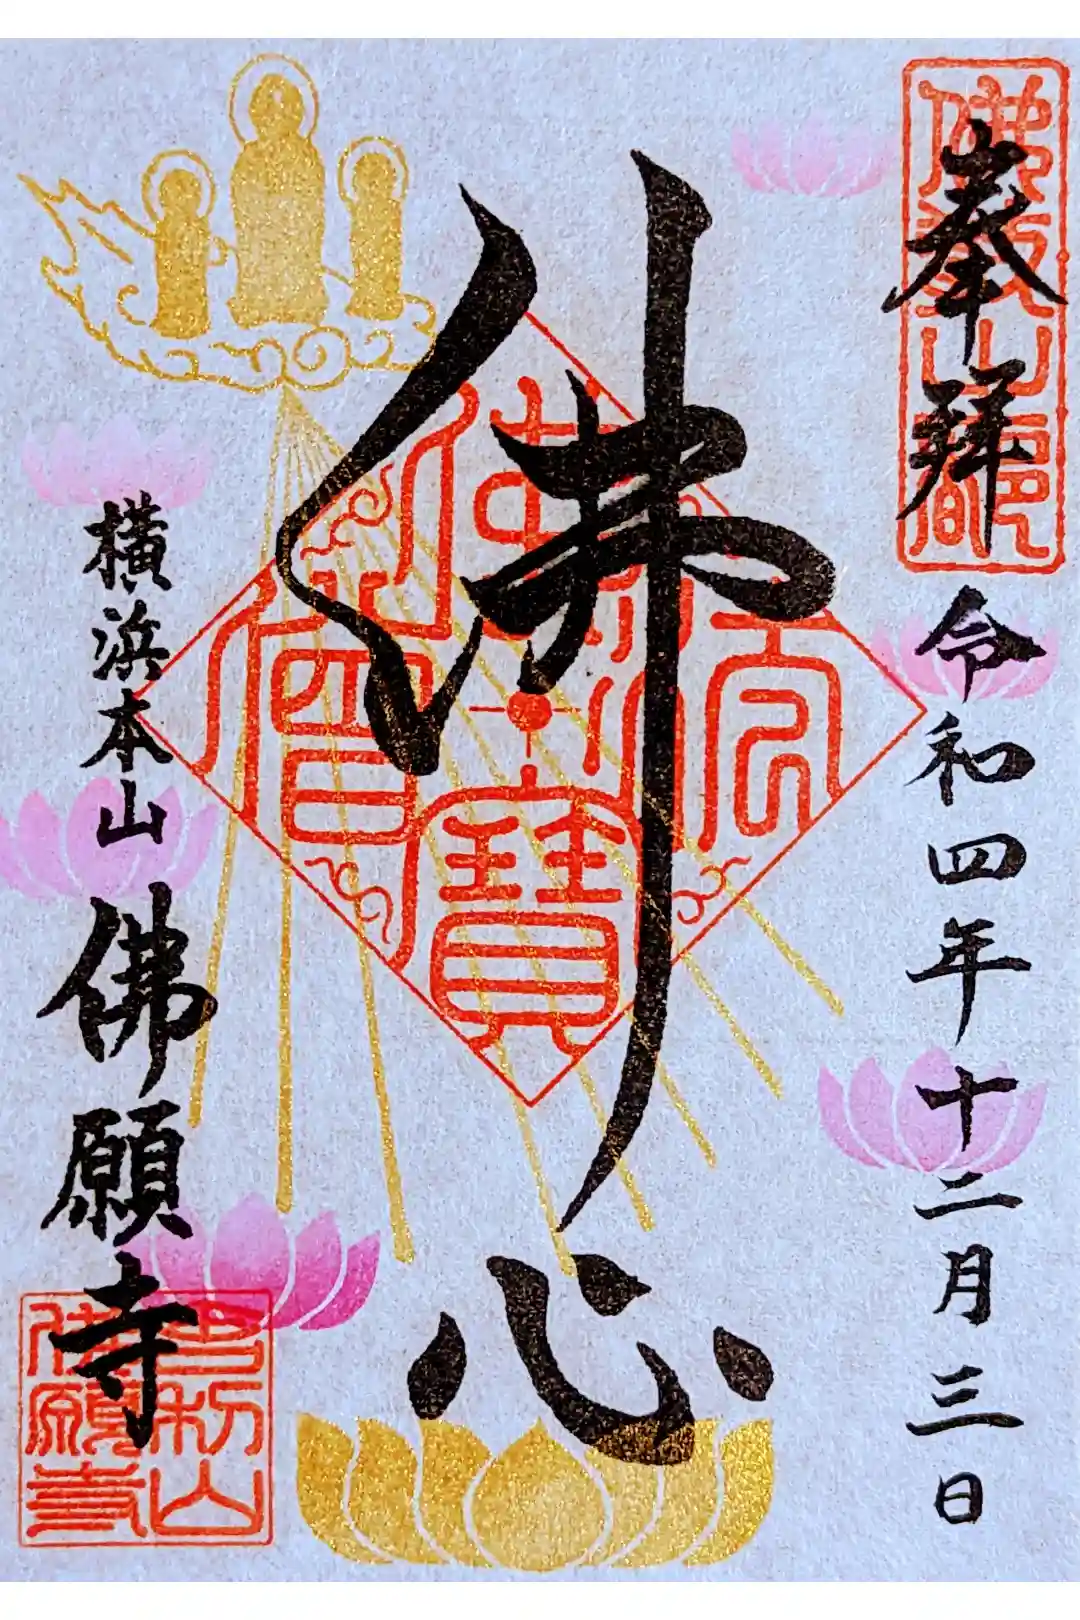 奉拜
令和四年十二月三日
佛心
佛法僧寶
横浜本山
佛願寺
舎利山
佛願寺